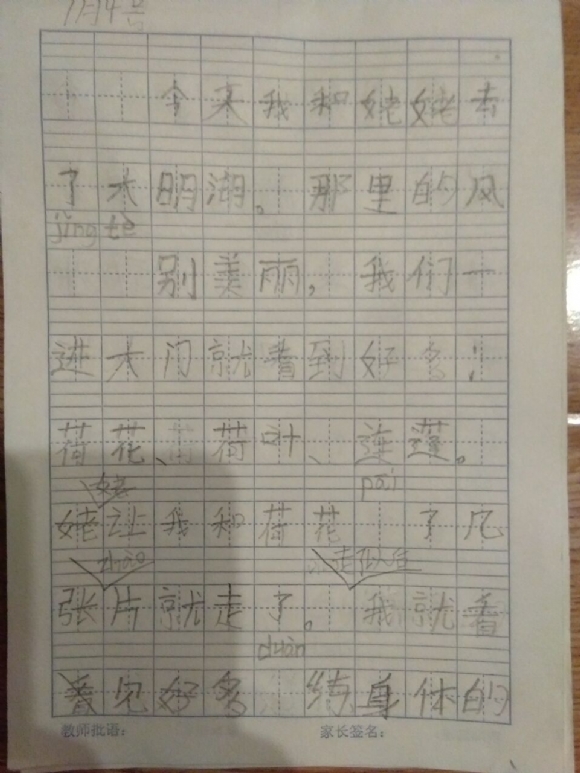 7月14号
今天我和姥姥去
了大明湖。那里的风
jǐng tè
别美丽，我们一
进大门就看到好多
荷花、荷叶、莲蓬。
姥 pāi
姥让我和荷花 了几
zhào 走以后
张片就走了。我就看
duàn
看见好多 练身体的
教师批语： 家长签名：